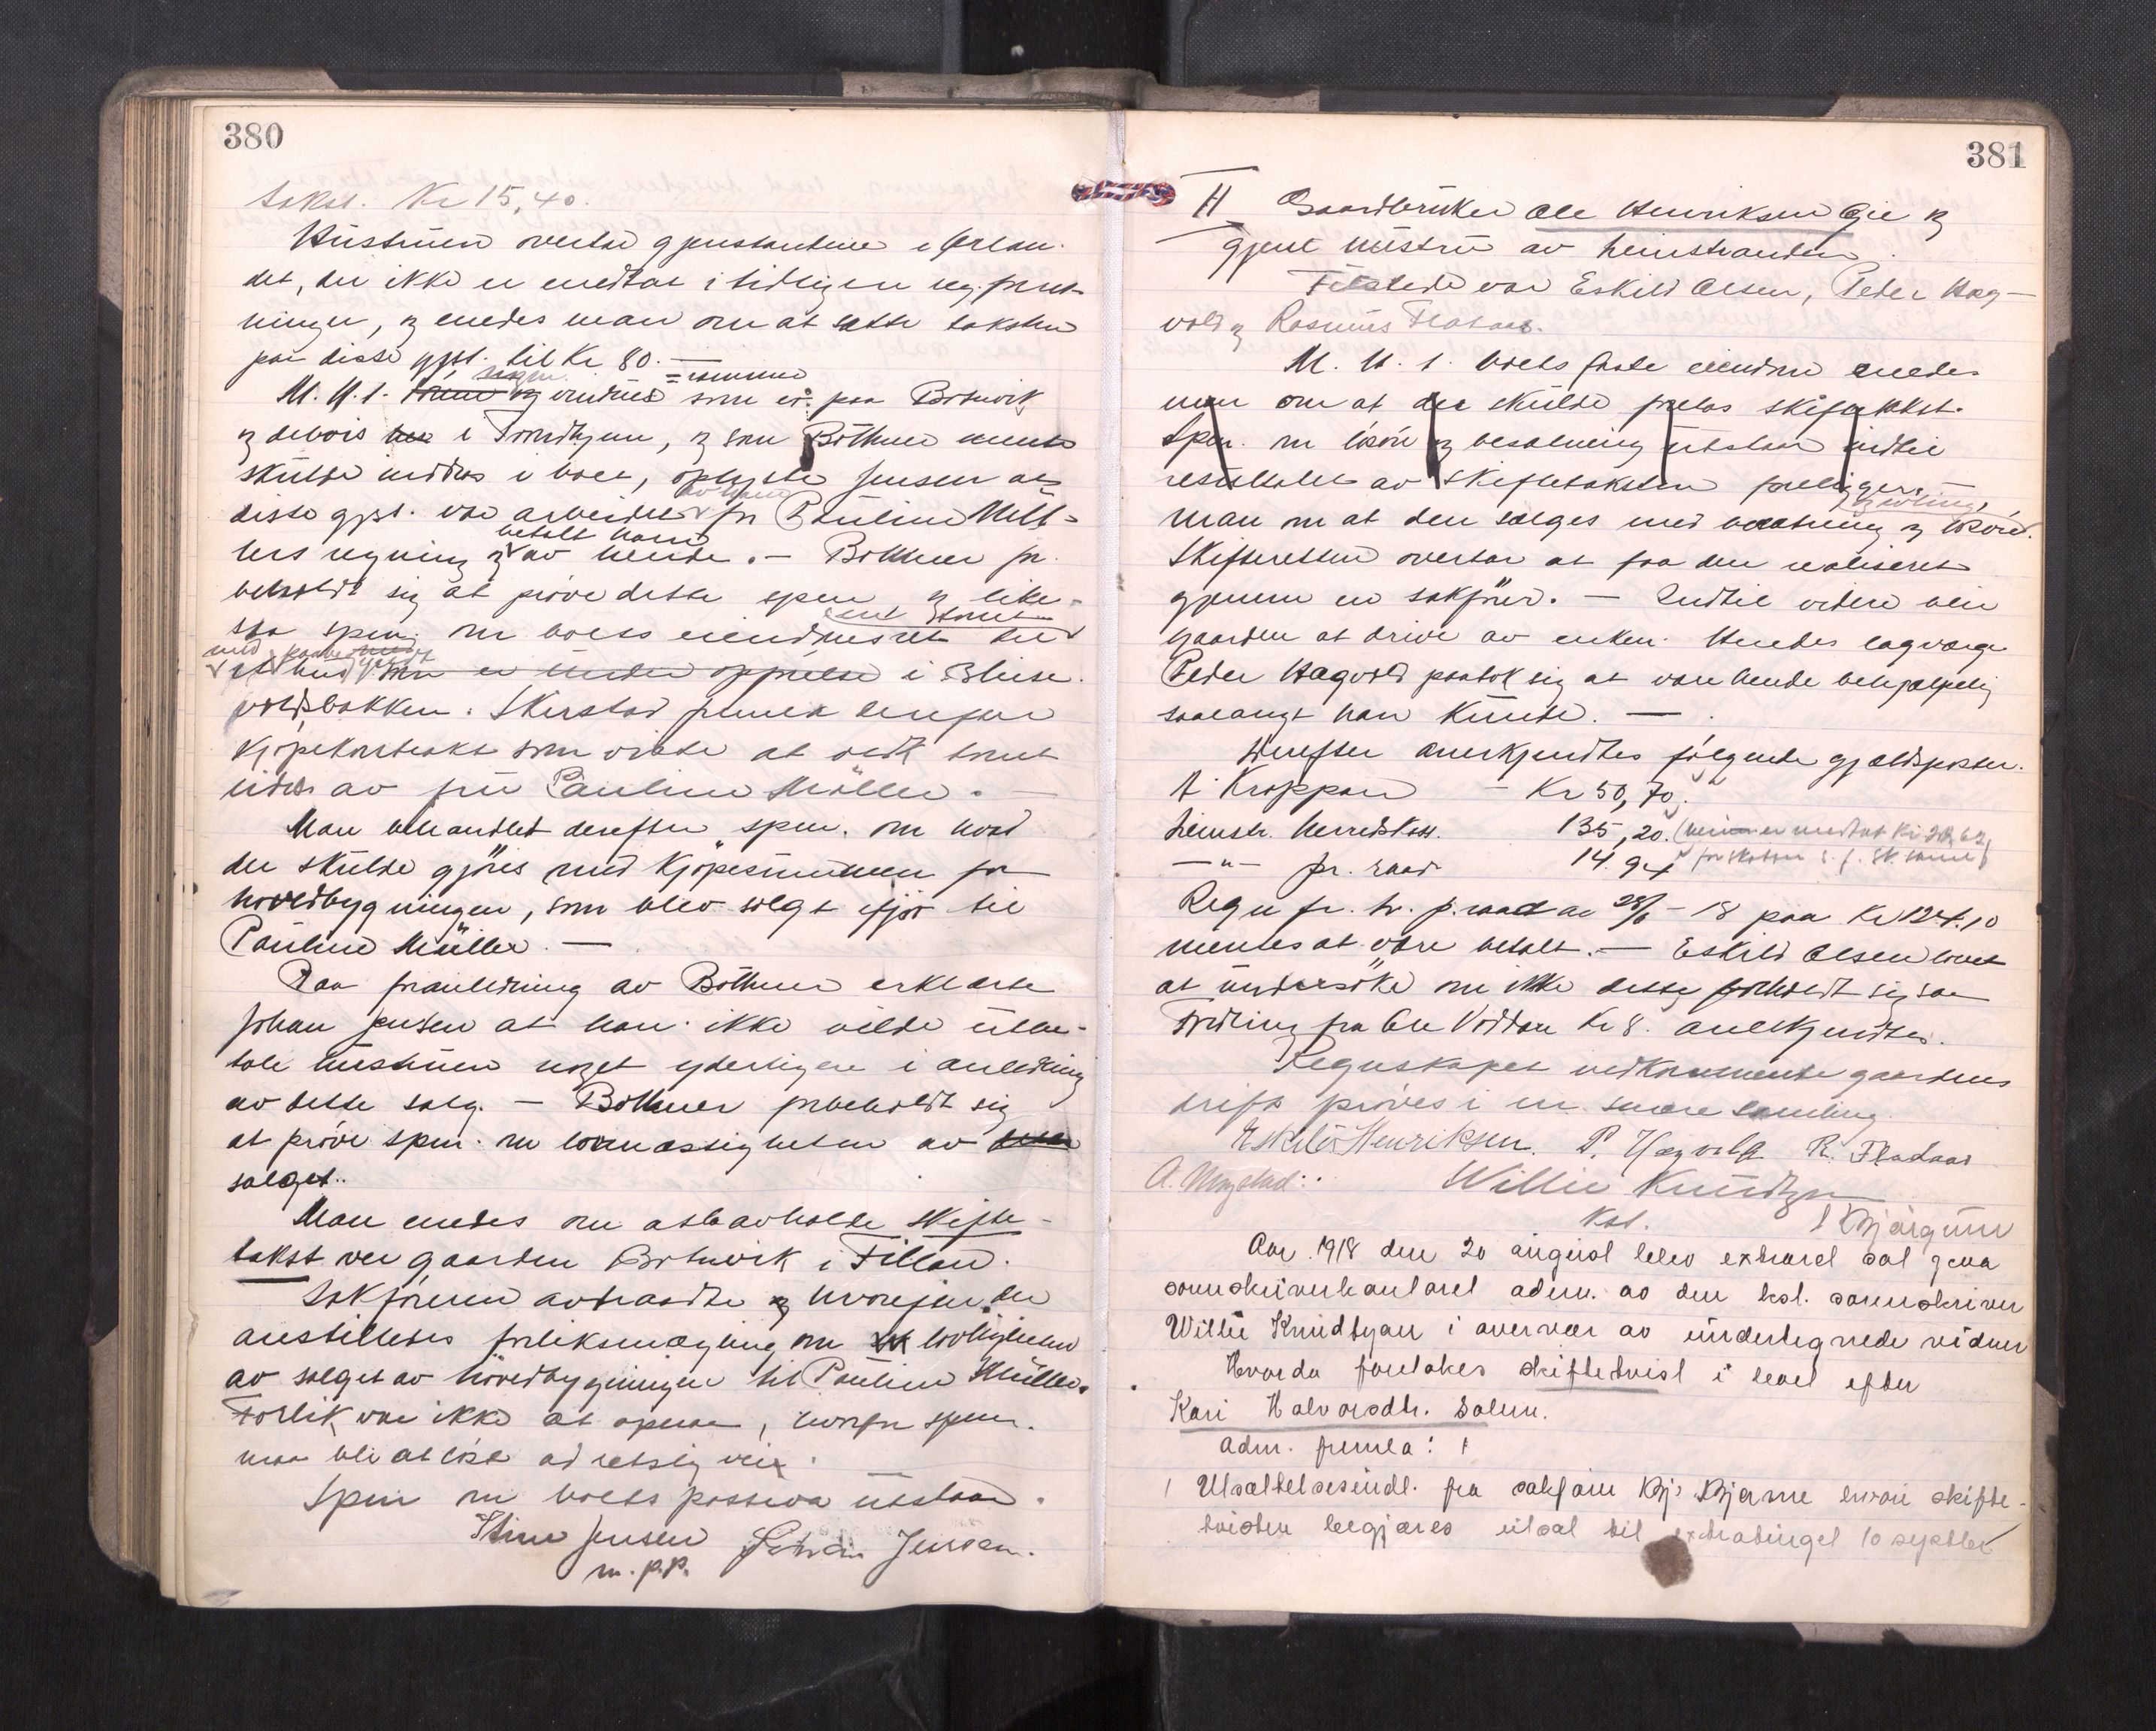 380
Takst. Kr 15,40.
Hustruen overtar gjenstandene i Ørlan-
det, der ikke er medtat i tidligere reg. foret-
ninger, og enedes man om at sætte taksten
paa disse gjst. til Kr 80.—
M. H. t. vinduesrammer som er paa Botnvik
og delvis i Trondhjem, og som Böthner mente
skulde inddras i boet, oplyste Jensen at
disse gjst. var arbeidet av ham for Pauline Müll-
lers regning og betalt ham av hende. — Böthner for-
beholdt sig at prøve dette spm. og like-
saa spm. om boets eiendomsret til en tomt
med et paabegyndt hus i Bluse-
voldsbakken. Skirstad fremla derefter
kjøpekontrakt som viste at vedk. tomt
eides av fru Pauline Müller. —
Man behandlet derefter spm. om hvad
der skulde gjöres med kjøpesummen for
hovedbygningen, som blev solgt ifjor til
Pauline Müller. —
Paa foranledning av Böthner erklærte
Johan Jensen at han ikke vilde utbe-
tale hustruen noget yderligere i anledning
av dette salg. — Böthner forbeholdt sig
at prøve spm. om lovmæssigheten av
salget.
Man enedes om at avholde skifte-
takst over gaarden Botnvik i Fillan.
Sakføreren avtraadte og hvorefter der
anstilledes forliksmægling om lovligheten
av salget av hovedbygningen til Pauline Müller.
Forlik var ikke at opnaa, hvorfor spm.
maa bli at løse ad retslig vei.
Spm om boets passiva utstaar.
Stine Jensen Johan Jensen.
m. p. p.
381
II Gaardbruker Ole Henriksen Gje og
gjenl. hustru av Leinstranden.
Tilstede var Eskild Olsen, Peder Hag-
vold og Rasmus Fladaas.
M. H. t. boets faste eiendom enedes
man om at der skulde foretas skiftetakst.
Spm. om løsøre og besætning utstaar indtil
resultatet av skiftetaksten foreligger.
man om at den sælges med besætning, avling og løsøre.
Skifteretten overtar at faa den realiseret
gjennem en sakfører. — Indtil videre blir
gaarden at drive av enken. Hendes lagværge
Peder Hagvold paatok sig at være hende behjælpelig
saalangt han kunde. —
Derefter anerkjendtes følgende gjældsposter.
A. Kroppan – Kr 50,70.
Leinstr. Herredskas. 135,20. (heri er medtat Kr 20,62
—"— fr. raad 14.94 for skatten
Regn fr. h. f. raad av 28/6 – 18 paa Kr 124.10
mentes at være betalt. — Eskild Olsen lovet
at undersøke om ikke dette forholdt sig saa
Fordring fra Ole Voddan Kr 8. anerkjendtes.
Regnskapet vedkommende gaardens
drift prøves i en senere samling.
Eskild Henriksen. P. Hagvold R. Fladaas
A. Mogstad. Willie Knudtzon
kst. Bjärgum
Aar 1918 den 20 august blev extraret sat paa
sorenskriverkontoret adm. av den kst. sorenskriver
Willie Knudtzon i overvær av undertegnede vidner
Hvorda foretokes skiftetvist i boet efter
Kari Halvorsdtr. Solem.
adm. fremla:
1 Utsættelsesindl. fra sakfører Bj. Bjerme hvori skifte-
tvisten begjæres utsat til extratinget 10 septbr.